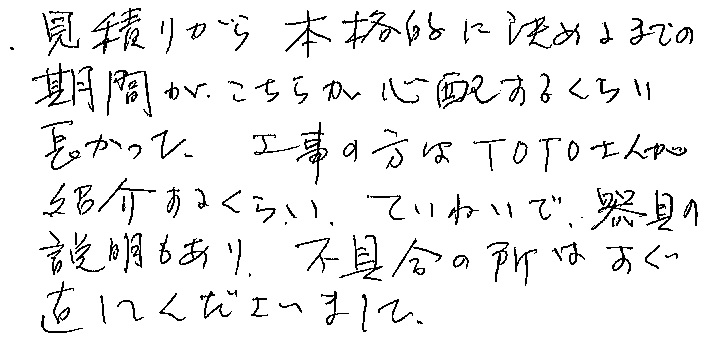 ・見積りから 本格的に決めるまでの
期間が、こちらが心配するくらい
長かった。 工事の方はTOTOさんが
紹介するくらい、ていねいで、器具の
説明もあり、不具合の所はすぐ
直してくださいました。